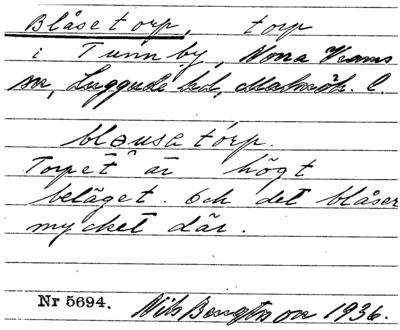 Blåsetorp, torp
i Tunnby, Norra Vrams
sn, Luggude hd, Malmöh. l.
blɑusatɔrp.
Torpet är högt
beläget och det blåser
mycket där.
Nr 5694. Nils Bengtsson 1936.